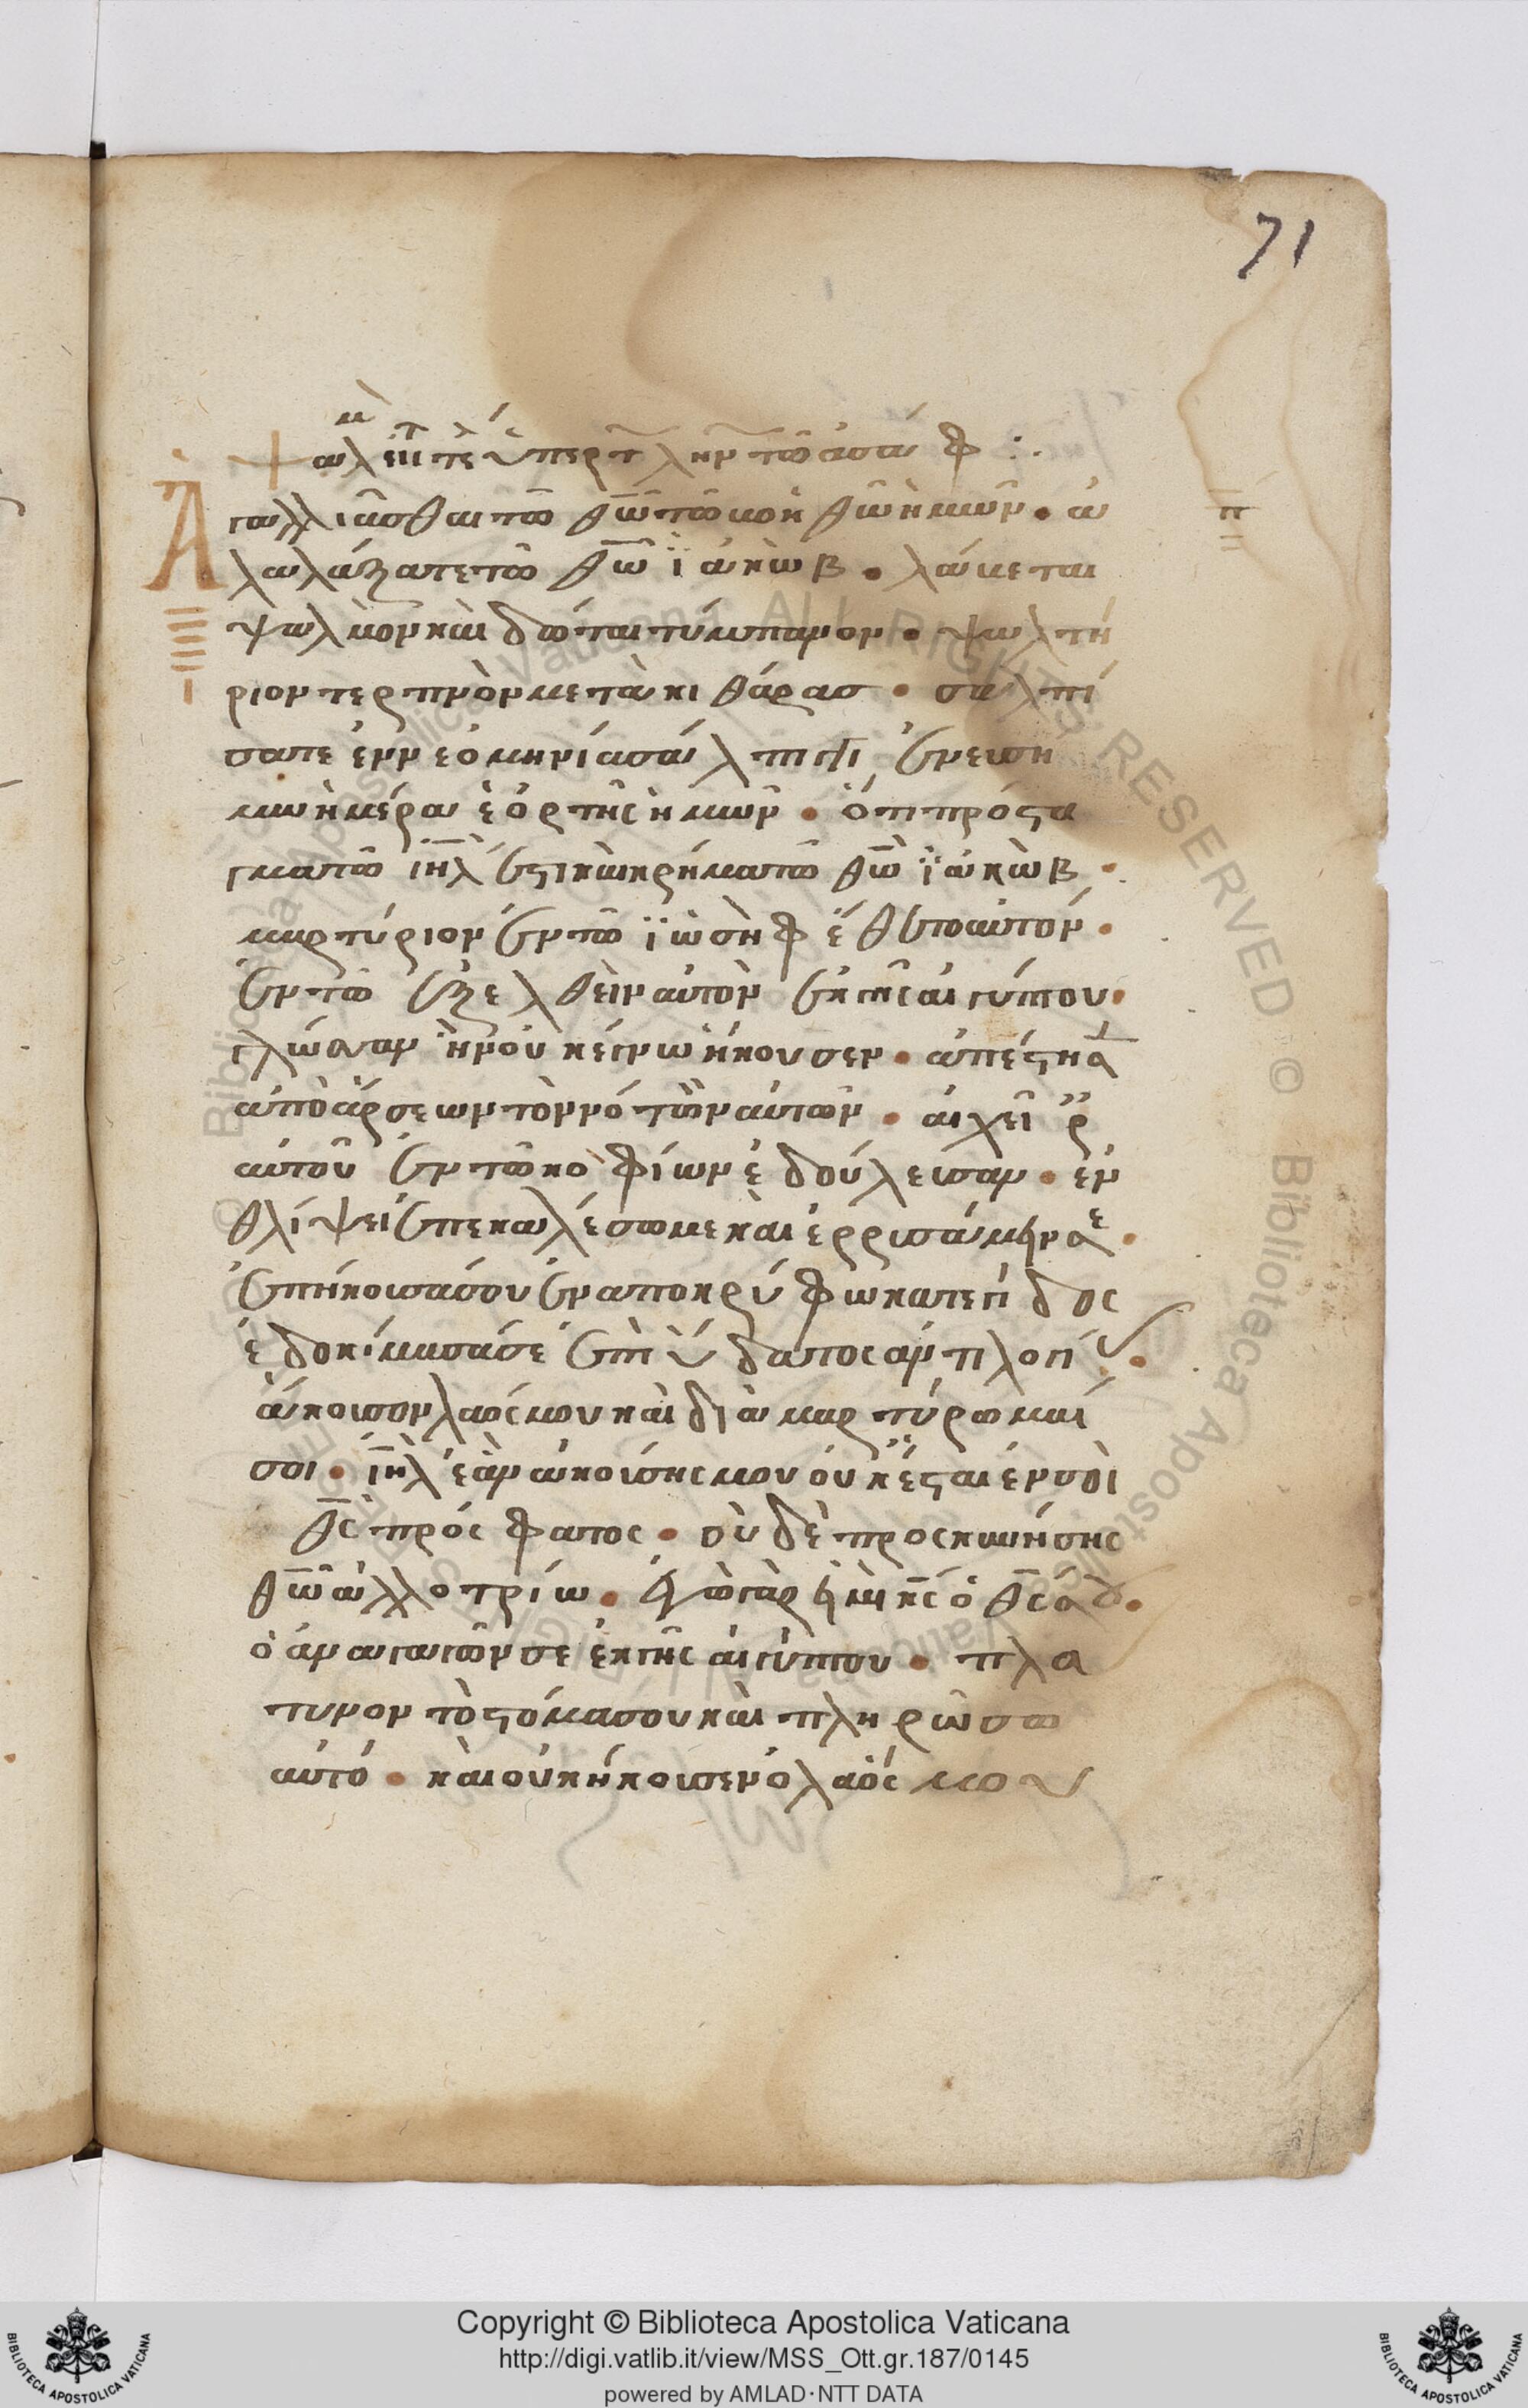 71
ψαλμ εἰς τ τέλ ὑπερ τ ληνῶ τῶ ἀσάφ :.
Ἀγαλλιᾶσθαι τῶ θῶ τῶ βοηθῶ ἡμῶν • ἀ
λαλάξατε τῶ θῶ ϊακὼβ • λάβεται
ψαλμὸν καὶ δόται τύμπανον • ψαλτή
ριον τερπνὸν μετὰ κιθάρας • σαλπί
σατε ἐν νεομηνία σάλπιγγι ἐν εὐσή
μω ἡμέρα ἑορτῆς ἡμῶν • ὅτι πρόστα
γμα τῶ ιηλ ἐστι καὶ κρήμα τῶ θῶ ϊακὼβ •
μαρτύριον ἐν τῶ ϊωσὴφ ἔθετο αὐτόν •
ἐν τῶ ἐξελθεῖν αὐτὸν ἐκ γῆς αἰγύπτου •
γλώσσαν ἣν οὐκ ἔγνω ἤκουσεν • ἀπέστησ
ἀπὸ ἄρσεων τὸν νότων αὐτῶν • αἱ χεῖρ
αὐτοῦ ἐν τῶ κοφίνω ἐδούλευσαν • ἐν
θλίψει ἐπεκαλέσω με καὶ ἐρρυσάμην σε •
ἐπήκουσά σου ἐν αποκρύφω καταιγίδος
ἐδοκίμασά σε ἐπὶ ὕδατος ἀντιλογί •
ἄκουσον λαός μου καὶ διαμαρτύρομαί
σοι • ιηλ ἐὰν ἀκούσης μου οὐκ ἔσται ἐν σοὶ
θς πρόσφατος • οὐδὲ προσκυνήσης
θῶ ἀλλοτρίω • ἐγὼ γάρ εἰμι κς ὁ θς σου •
ὁ ἀναγαγῶν σε ἐκ γῆς αἰγύπτου • πλά
τυνον τὸ στόμα σου καὶ πληρῶσω
αὐτό • καὶ οὐκ ἤκουσεν ὁ λαός μου
Copyright © Biblioteca Apostolica Vaticana
http://digi.vatlib.it/view/MSS_Ott.gr.187/0145
powered by AMLAD·NTT DATA